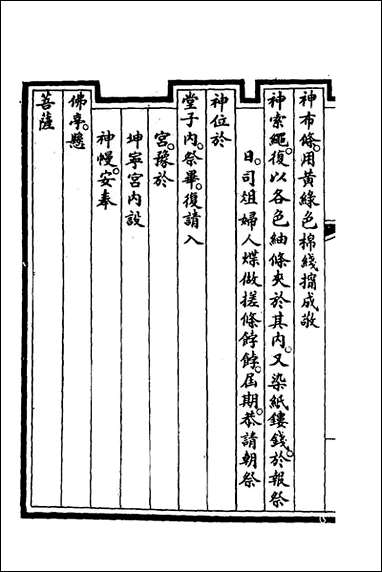 神布條用黃綠色棉綫擰成敬
神索繩復以各色紬條夾於其內又染紙鏤錢於報祭
日司俎婦人煠做搓條餑餑屆期恭請朝祭
神位於
堂子內祭畢復請入
宮豫於
坤寧宮內設
神幔安奉
佛亭懸
菩薩